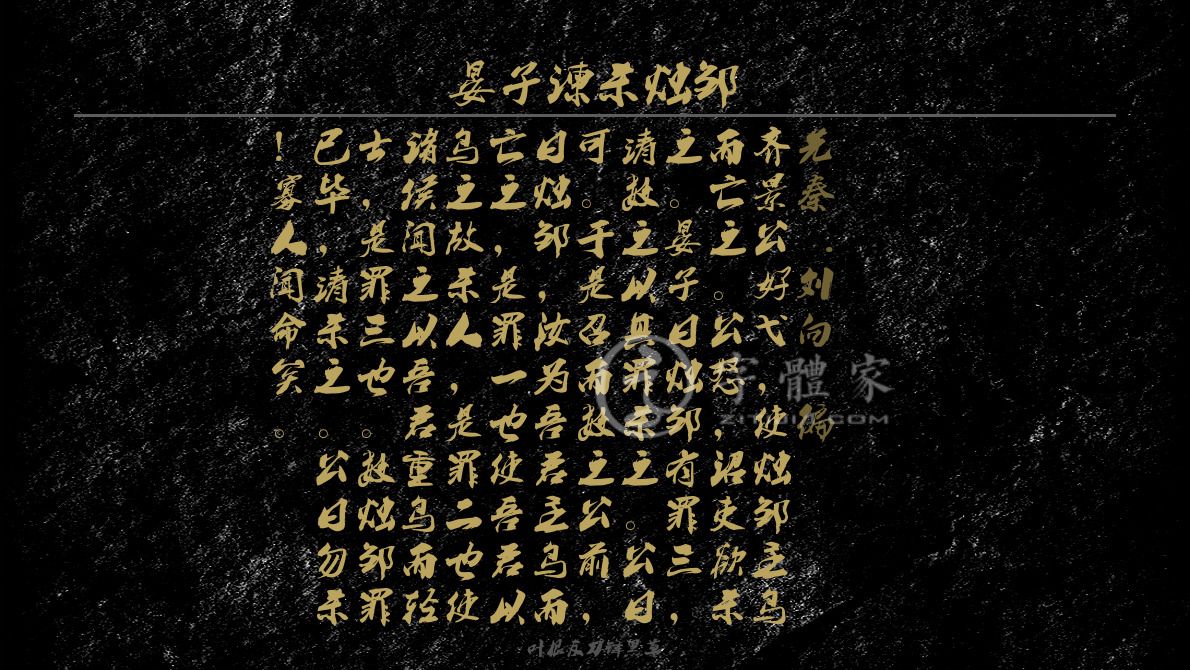 晏子谏杀烛邹
先秦 . 刘向 编
齐景公好弋，使烛邹主鸟
而亡之。公怒，诏吏欲杀
之。晏子曰烛邹有罪三，
请数之以其罪杀之。公曰
可。于是召而数之公前，
曰烛邹，汝为吾君主鸟而
亡之，是罪一也使吾君以
鸟之故杀人，是罪二也使
诸侯闻之以吾君重鸟而轻
士，是罪三也。数烛邹罪
已毕，请杀之。公曰勿杀
！寡人闻命矣。
字體家
ZITIJIA.COM
叶根友刀锋黑草